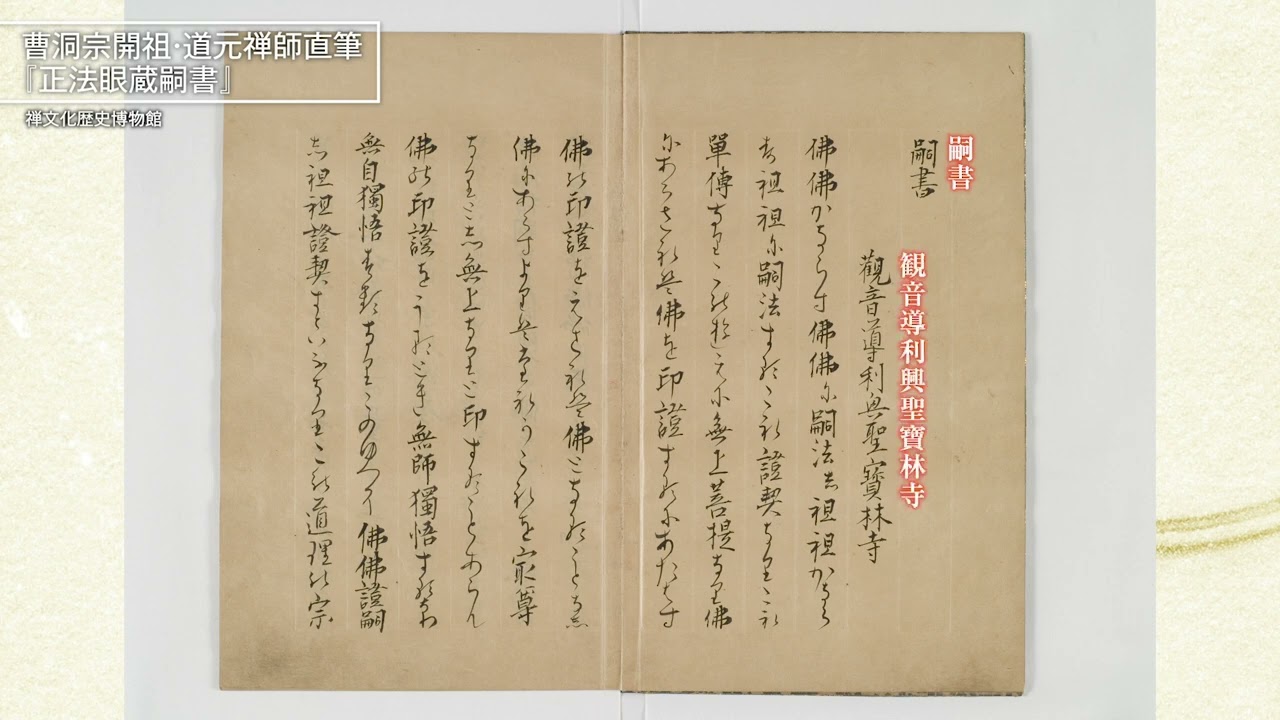 曹洞宗開祖·道元禅師直筆
『正法眼蔵嗣書』
禅文化歴史博物館
嗣書
嗣書
観音導利興聖寶林寺
觀音導利興聖寶林寺
佛佛かならす佛佛に嗣法し祖祖かなら
す祖祖に嗣法するこれ證契なりこれ
單傳なりこのゆえに無上菩提なり佛
にあらされは佛を印證するにあたはす
佛の印證をえされは佛となることなし
佛にあらすよりはたれかこれを最尊
なりとし無上なりと印することあらん
佛の印證をうるとき無師獨悟するなり
無自獨悟するなりこのゆへに佛佛證嗣
し祖祖證契すといふなりこの道理の宗